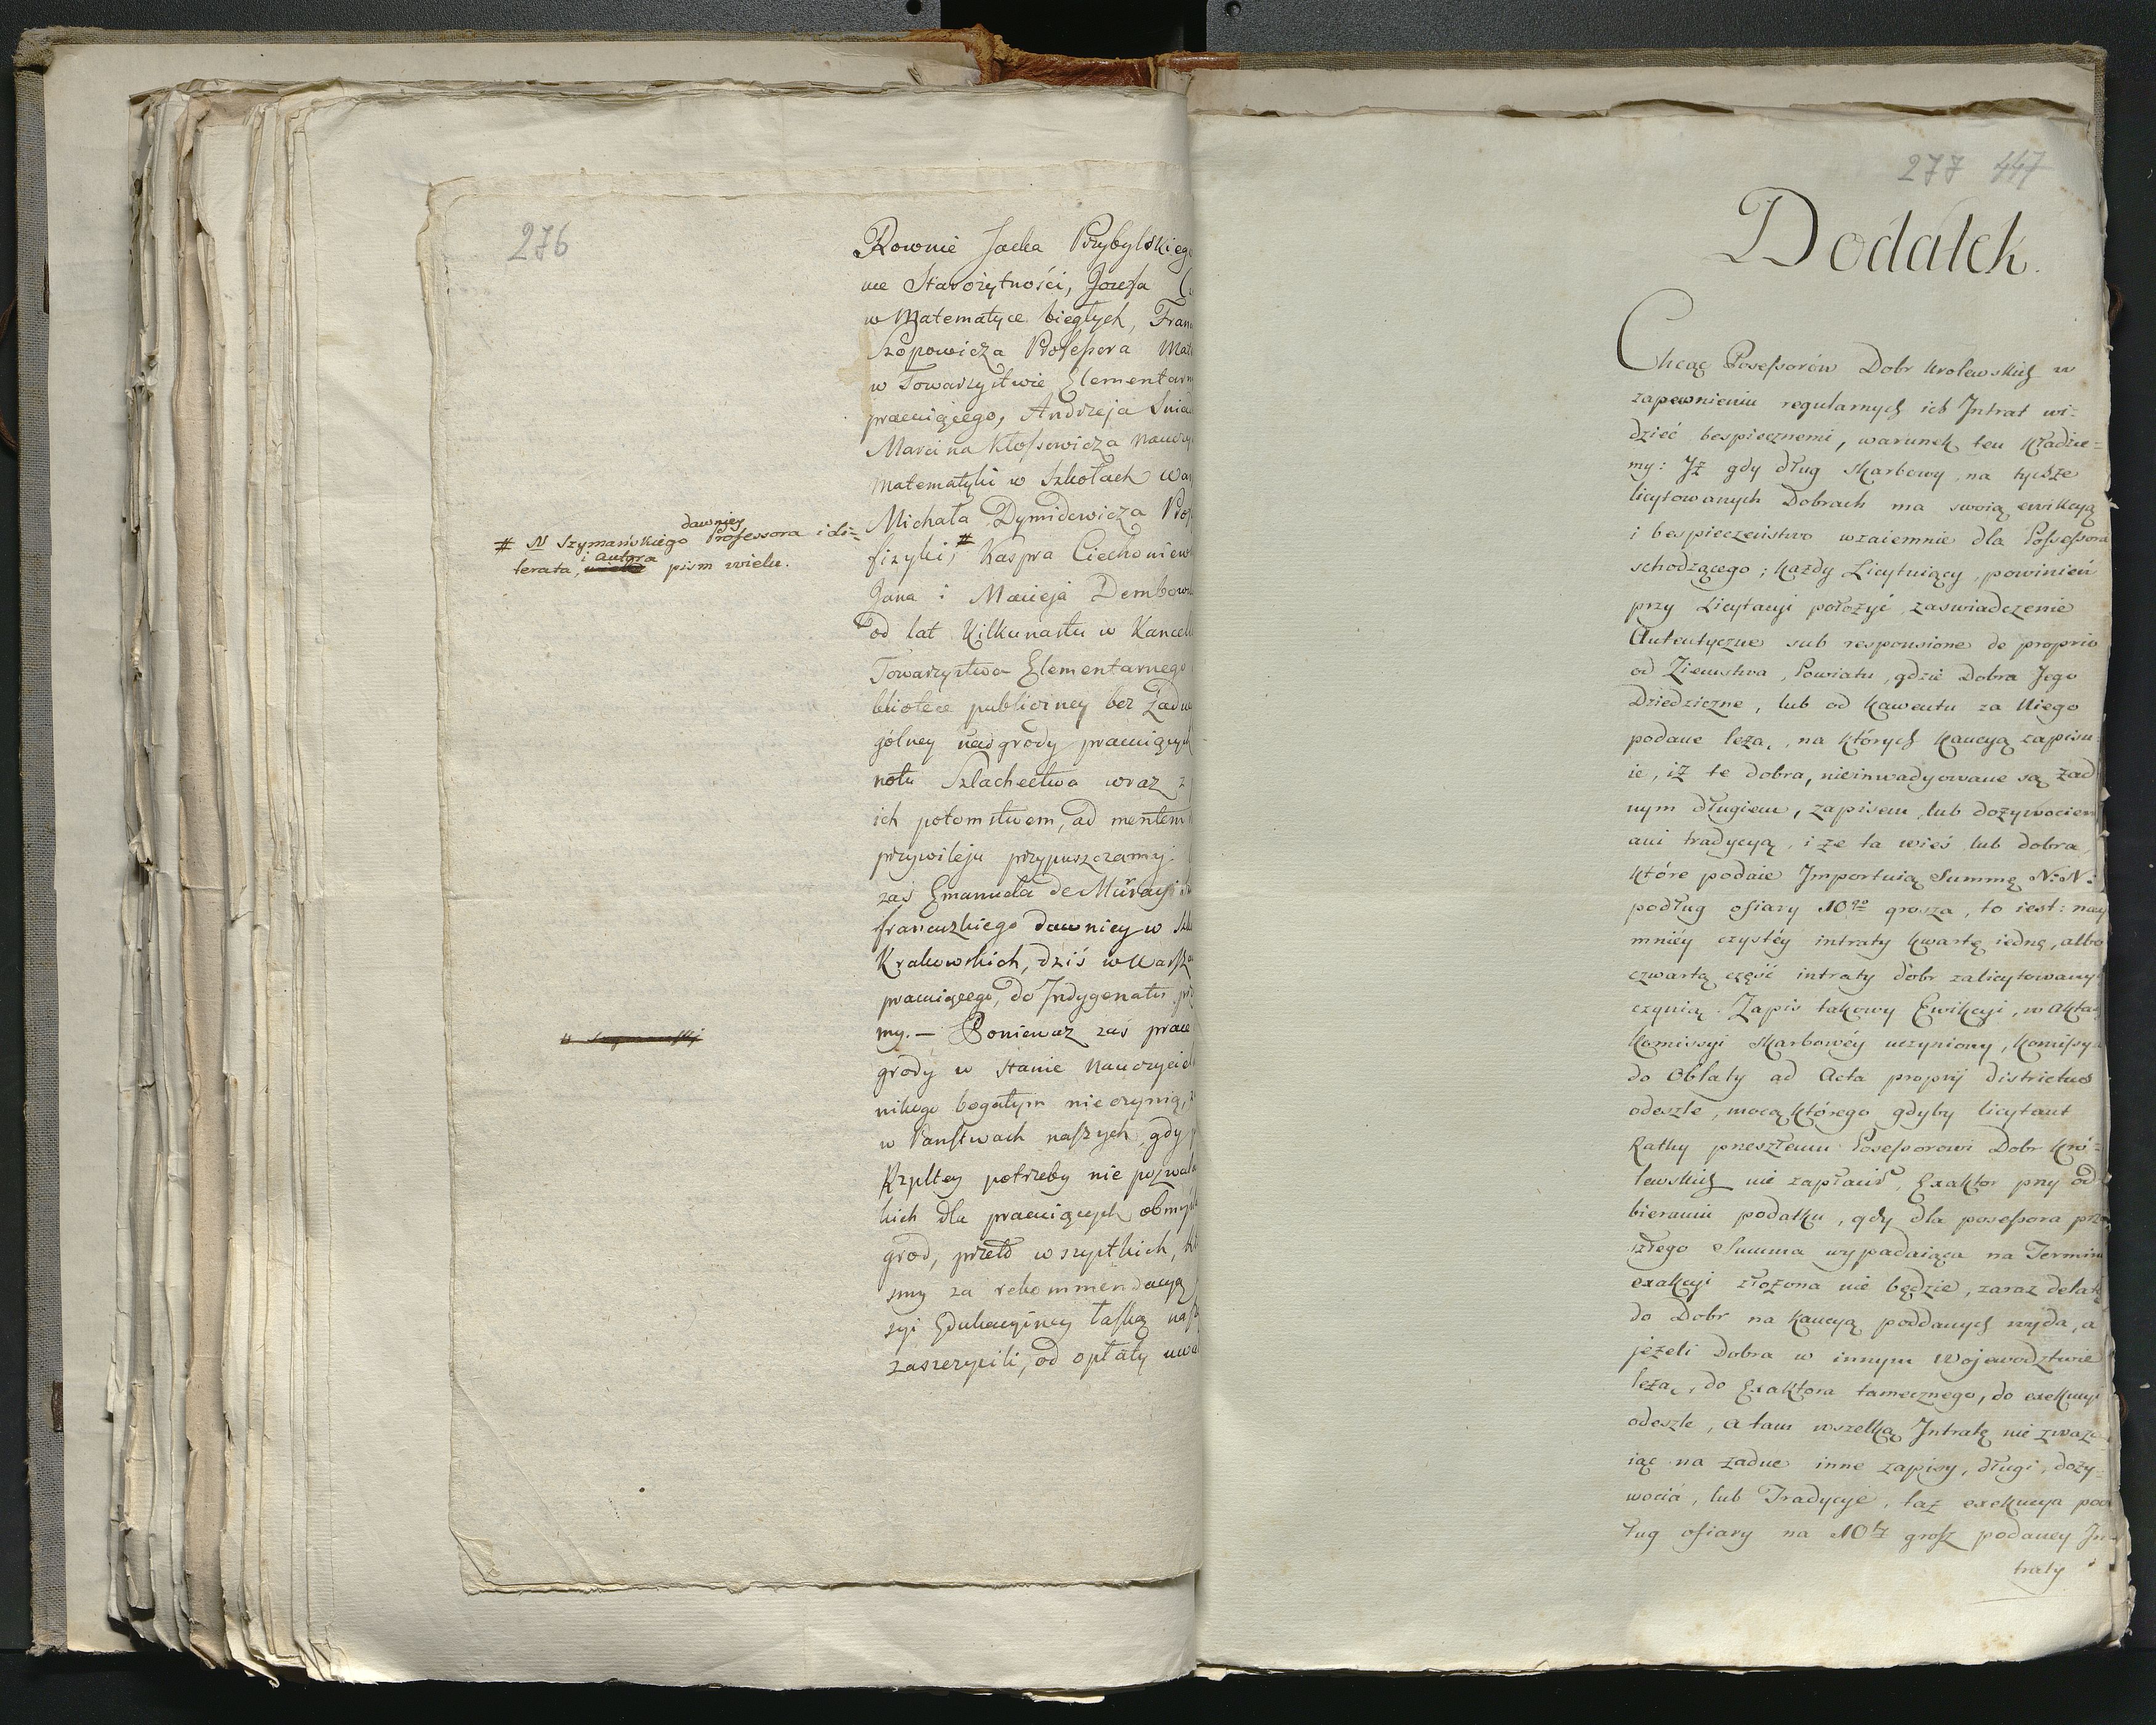 276
Rownie Jacka Przybylskiego
ne Starożytności, Jozefa
w Matematyce biegłych, Fran
Szopowicza Professora Mat
w Towarzystwie Elementarn
pracuiącego, Andrzeja Sniad
Marcina Kłossowicza Nauczy
Matematyki w Szkołach War
Michała Dymidowicza Prof
fizyki, # Kaspra Ciechoniew
Jana i Macieja Dembows
od lat Kilkunastu w Kancell
Towarzystwa Elementarnego
bliotece publiczney bez żadne
gólney nadgrody pracuiących
notu Szlachectwa wraz z
ich potomstwem, ad mentem
przywileju przypuszczamy.
zaś Emanuela de Muray
francuzkiego dawniey w Szk
Krakowskich, dziś w Warsza
pracuiącego, do Indygenatu prz
my. — Ponieważ zaś prace
grody w stanie Nauczyciel
nikogo bogatym nie czynią,
w Państwach naszych, gdy
Rzpltey potrzeby nie pozwala
kich dla pracuiących obmyśl
grod, przeto wszystkich,
smy za rekommendacyą
syi Edukacyiney łaską nasz
zaszczycili, od opłaty
# N Szymańskiego dawniey Professora i li=
terata, i autora pism wielu.
277 447
Dodatek.
Chcąc Possessorów Dobr Krolewskich w
zapewnieniu regularnych ich Intrat wi=
dzieć bespiecznemi, warunek ten kładzie=
my: Iż gdy dług skarbowy na tychże
licytowanych Dobrach ma swoią ewikcyą
i bespieczeństwo wzaiemnie dla Possessora
schodzącego; każdy Licytuiący, powinień
przy Licytacyi położyć zaswiadczenie
Autentyczne sub responsione de proprio
od Ziemstwa, Powiatu, gdzie Dobra Jego
Dziedziczne, lub od Kawentu za Niego
podane leżą, na których Kaucyą zapisu=
ie, iż te dobra, nieinwadyowane są żad
nym długiem, zapisem, lub dożywociem
ani tradycyą, i że ta wieś lub dobra,
które podaie Importuią Summę N: N:
podług ofiary 10go grosza, to iest: nay
mniéy czystéy intraty kwartę iednę, albo
czwartą część intraty dóbr zalicytowanych
czynią. Zapis takowy Ewikcyi, w Aktach
Komissyi Skarbowéy uczyniony, Komissya
do Oblaty ad Acta proprij districtus
odeszle, mocą którego gdyby licytant
Ratky przeszłemu Possessorowi Dobr Kró=
lewskich nie zapłacił, Exaktor przy od=
bieraniu podatku, gdy dla possessora prze
szłego Summa wypadaiąca na Termin
exakcyi złożona nie będzie, zaraz delatę
do Dobr na kaucyą poddanych wyda, a
jeżeli Dobra w innym Wojewodztwie
leżą, do Exaktora tamecznego, do exekucyi
odeszle, a tam wszelką Intratę nie zważa
iąc na żadne inne zapisy, długi, doży=
wocia, lub Tradycye, taż exekucya pod
ług ofiary na 10ty grosz podaney In=
traty